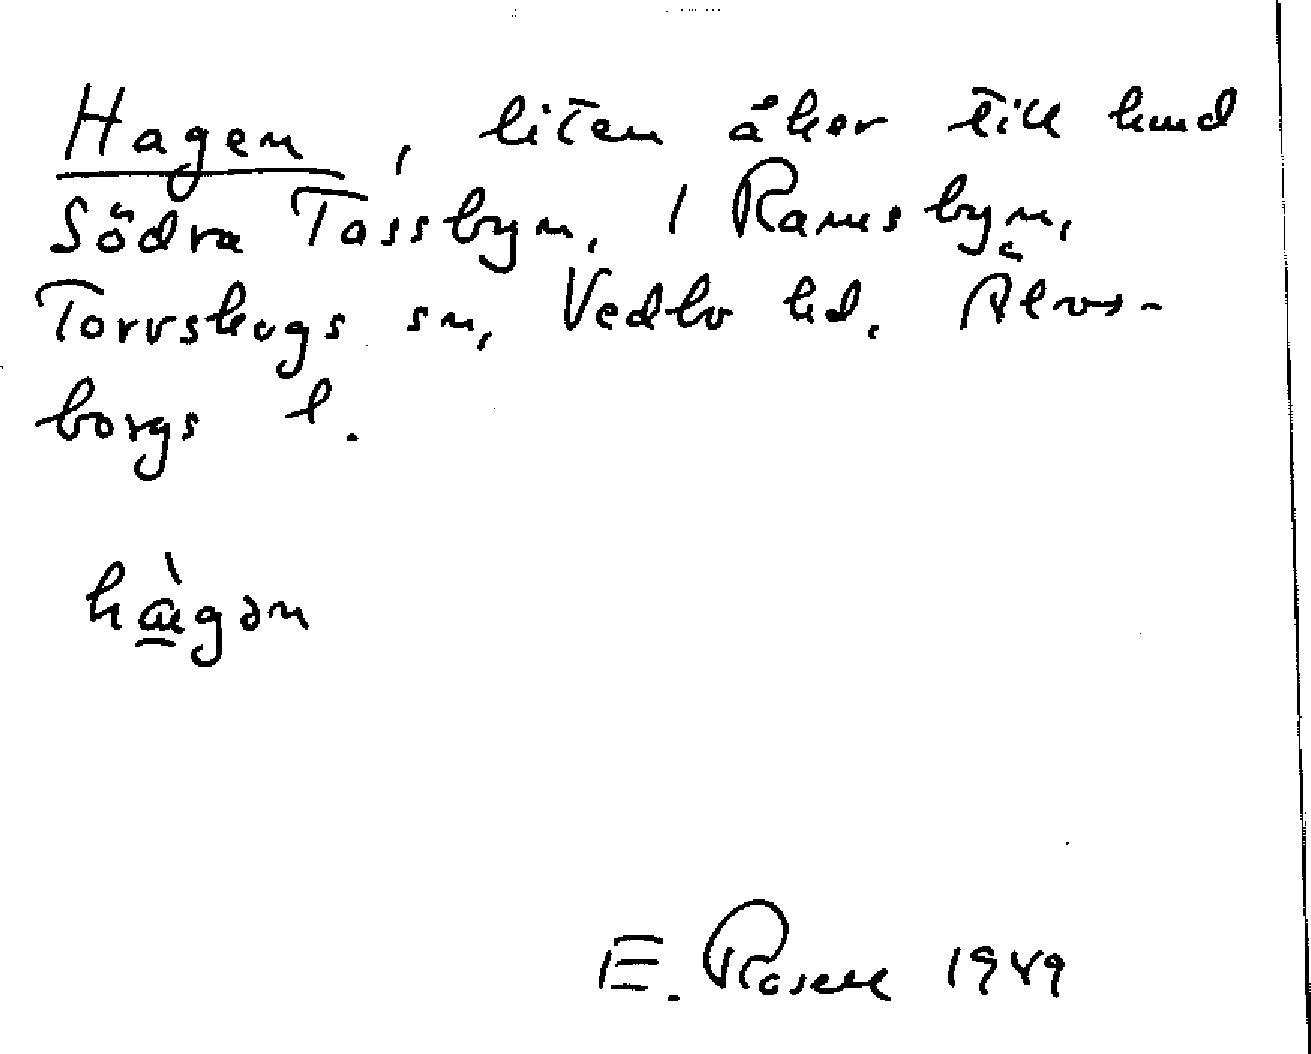 Hagen, liten åker till hmd
Södra Tassbyn, 1 Ramsbyn,
Torrskogs sn, Vedbo hd. Älvs-
borgs l.
hàgən
E. Rosell 1949